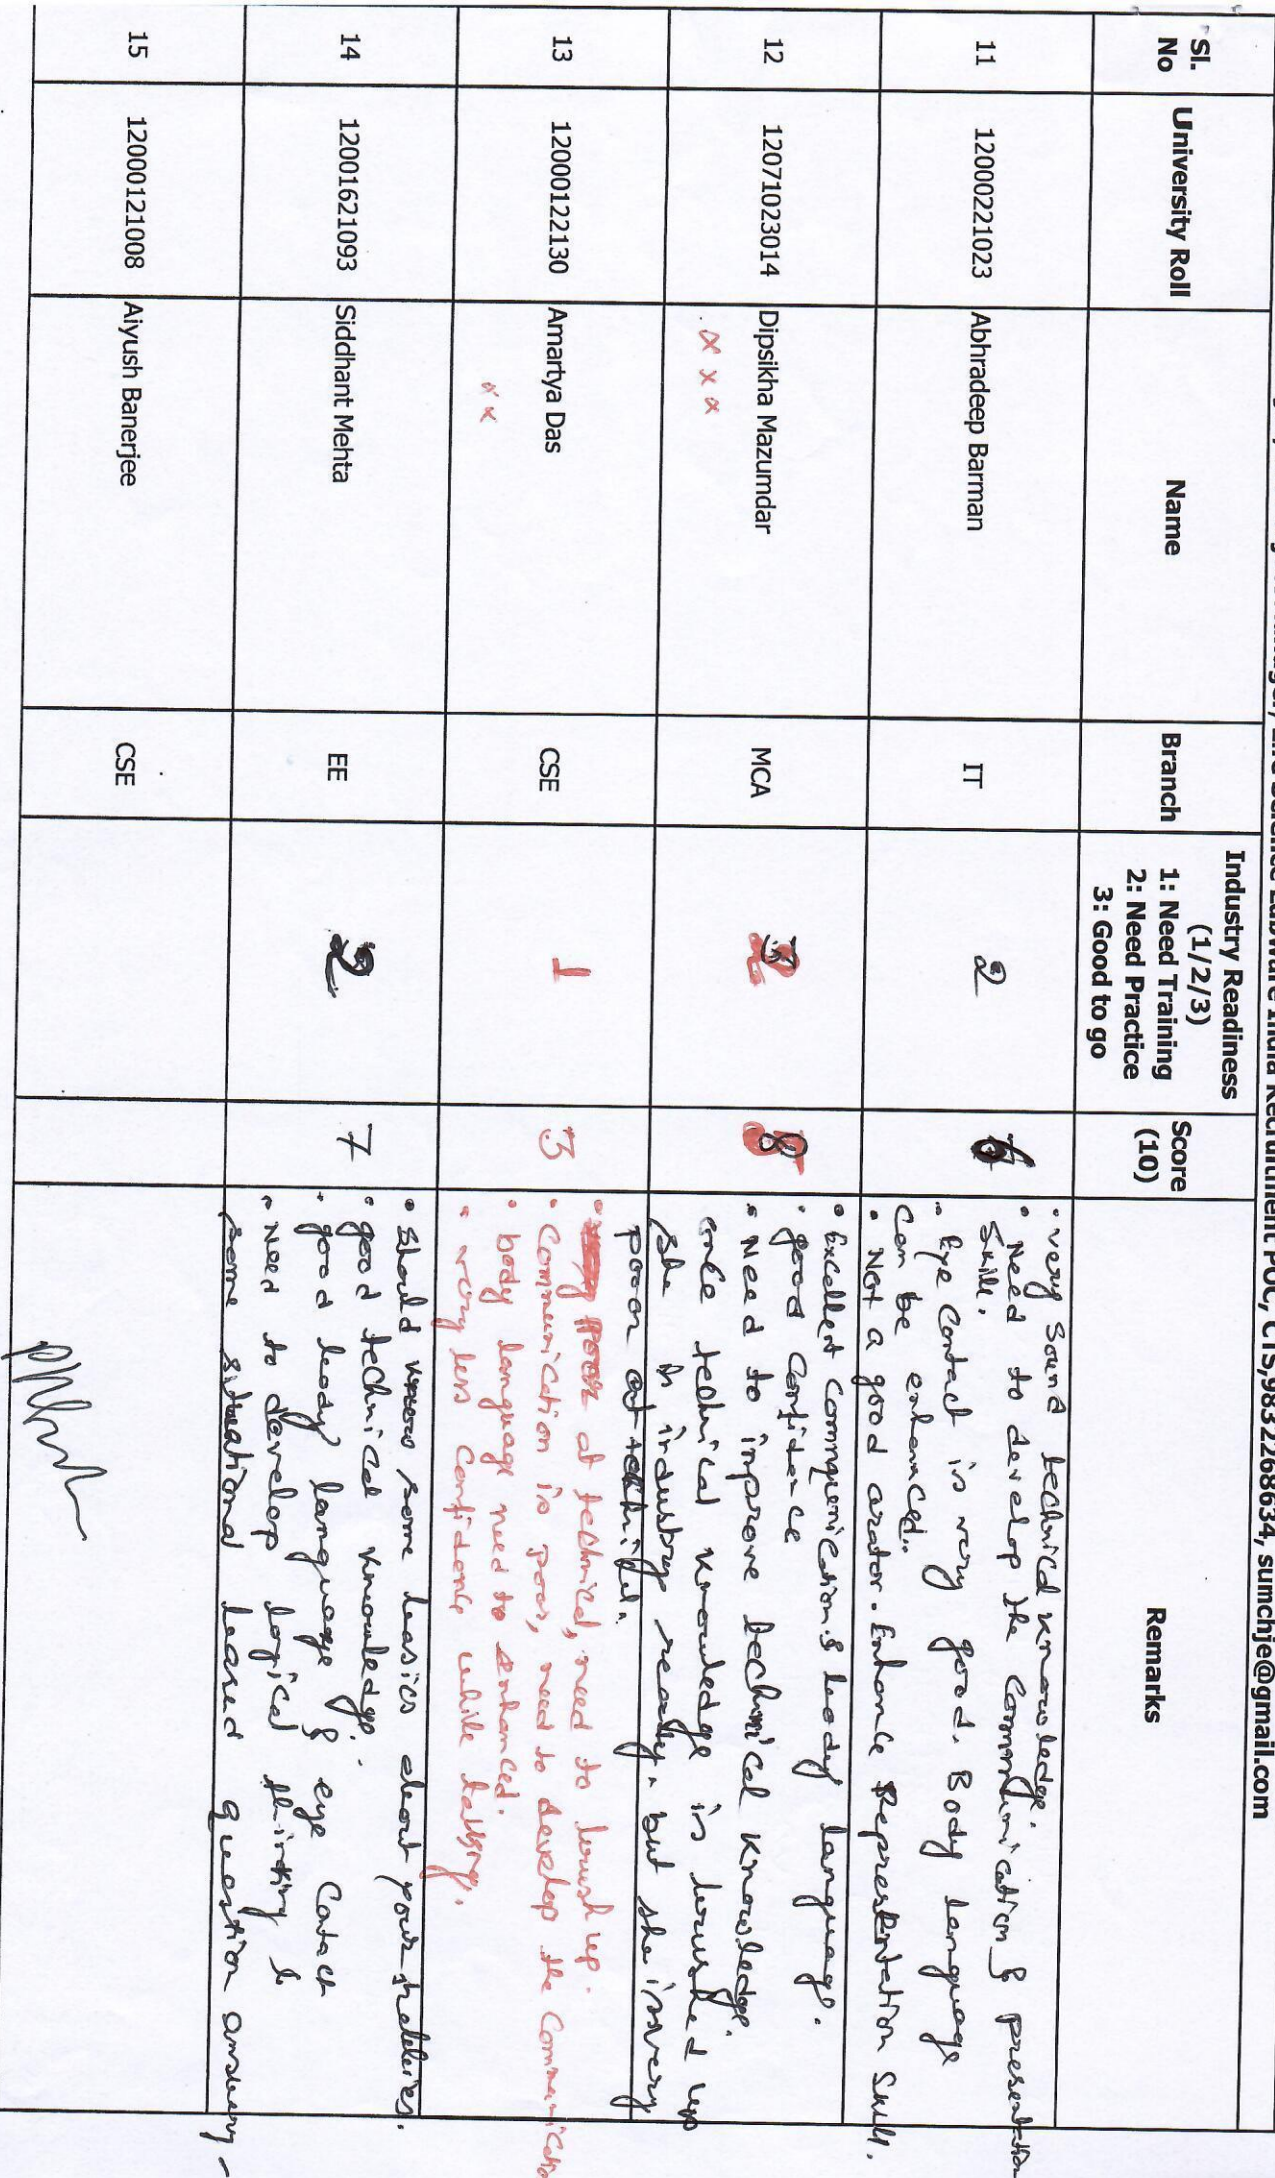 Recruitment POC, CTS,9832268634, sumchje@gmail.com
Sl. No
University Roll
Name
Branch
Industry Readiness
(1/2/3)
1: Need Training
2: Need Practice
3: Good to go
Score
(10)
Remarks
11
12000221023
Abhradeep Barman
IT
2
6
• very sound technical knowledge.
• Need to develop the communication & presentation
skill.
• Eye contact is very good. Body language
can be enhanced.
• Not a good orator. Enhance Representation skill.
12
12071023014
Dipsikha Mazumdar
x x x
MCA
8
• Excellent communication & body language.
• good confidence
• Need to improve technical knowledge.
once technical knowledge is brushed up
she is industry ready. but she is very
poor at technical.
13
12000122130
Amartya Das
x x
CSE
1
3
at technical, need to brush up.
• Communication is poor, need to develop the Communication
• body language need to enhanced.
• very less confidence while talking.
14
12001621093
Siddhant Mehta
EE
2
7
• Should know some basics about your
• good technical knowledge.
• good body language & eye contact
• Need to develop logical thinking &
some situational based question
15
12000121008
Aiyush Banerjee
CSE